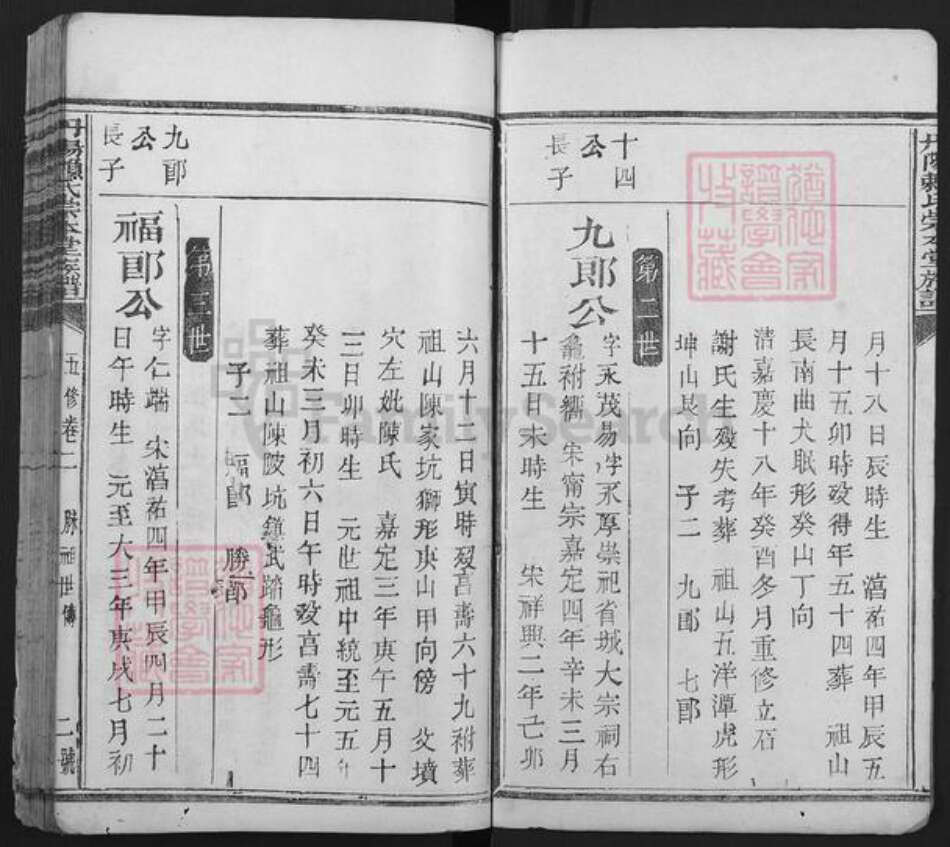 月十八日辰時生　淳祐四年甲辰五
月十五卯時歿得年五十四葬　祖山
長南曲犬眠形癸山丁向
清嘉慶十八年癸酉冬月重修立石
謝氏生歿失考葬　祖山五洋潭虎形
坤山艮向　子二　九郎　七郎
第二世
十四
公
長子
九郎公
字永茂易字永厚崇祀省城大宗祠右
龕祔衬　宋甯宗嘉定四年辛未三月
十五日未時生　宋祥興二年己卯
六月十二日寅時歿享壽六十九祔葬
祖山陳家坑獅形庚山甲向傍　父墳
穴左妣陳氏　嘉定三年庚午五月十
三日卯時生　元世祖中統至元五年
癸未三月初六日午時歿享壽七十四
葬祖山陳陂坑鎮武踏龜形
子二　福郎　勝郎
第三世
九郎
公
長子
福郎公
字仁端　宋淳祐四年甲辰四月二十
日午時生　元至大三年庚戌七月初
丹陽賴氏崇本堂族譜
五修卷二　脉祖世傳　二號
FamilySearch